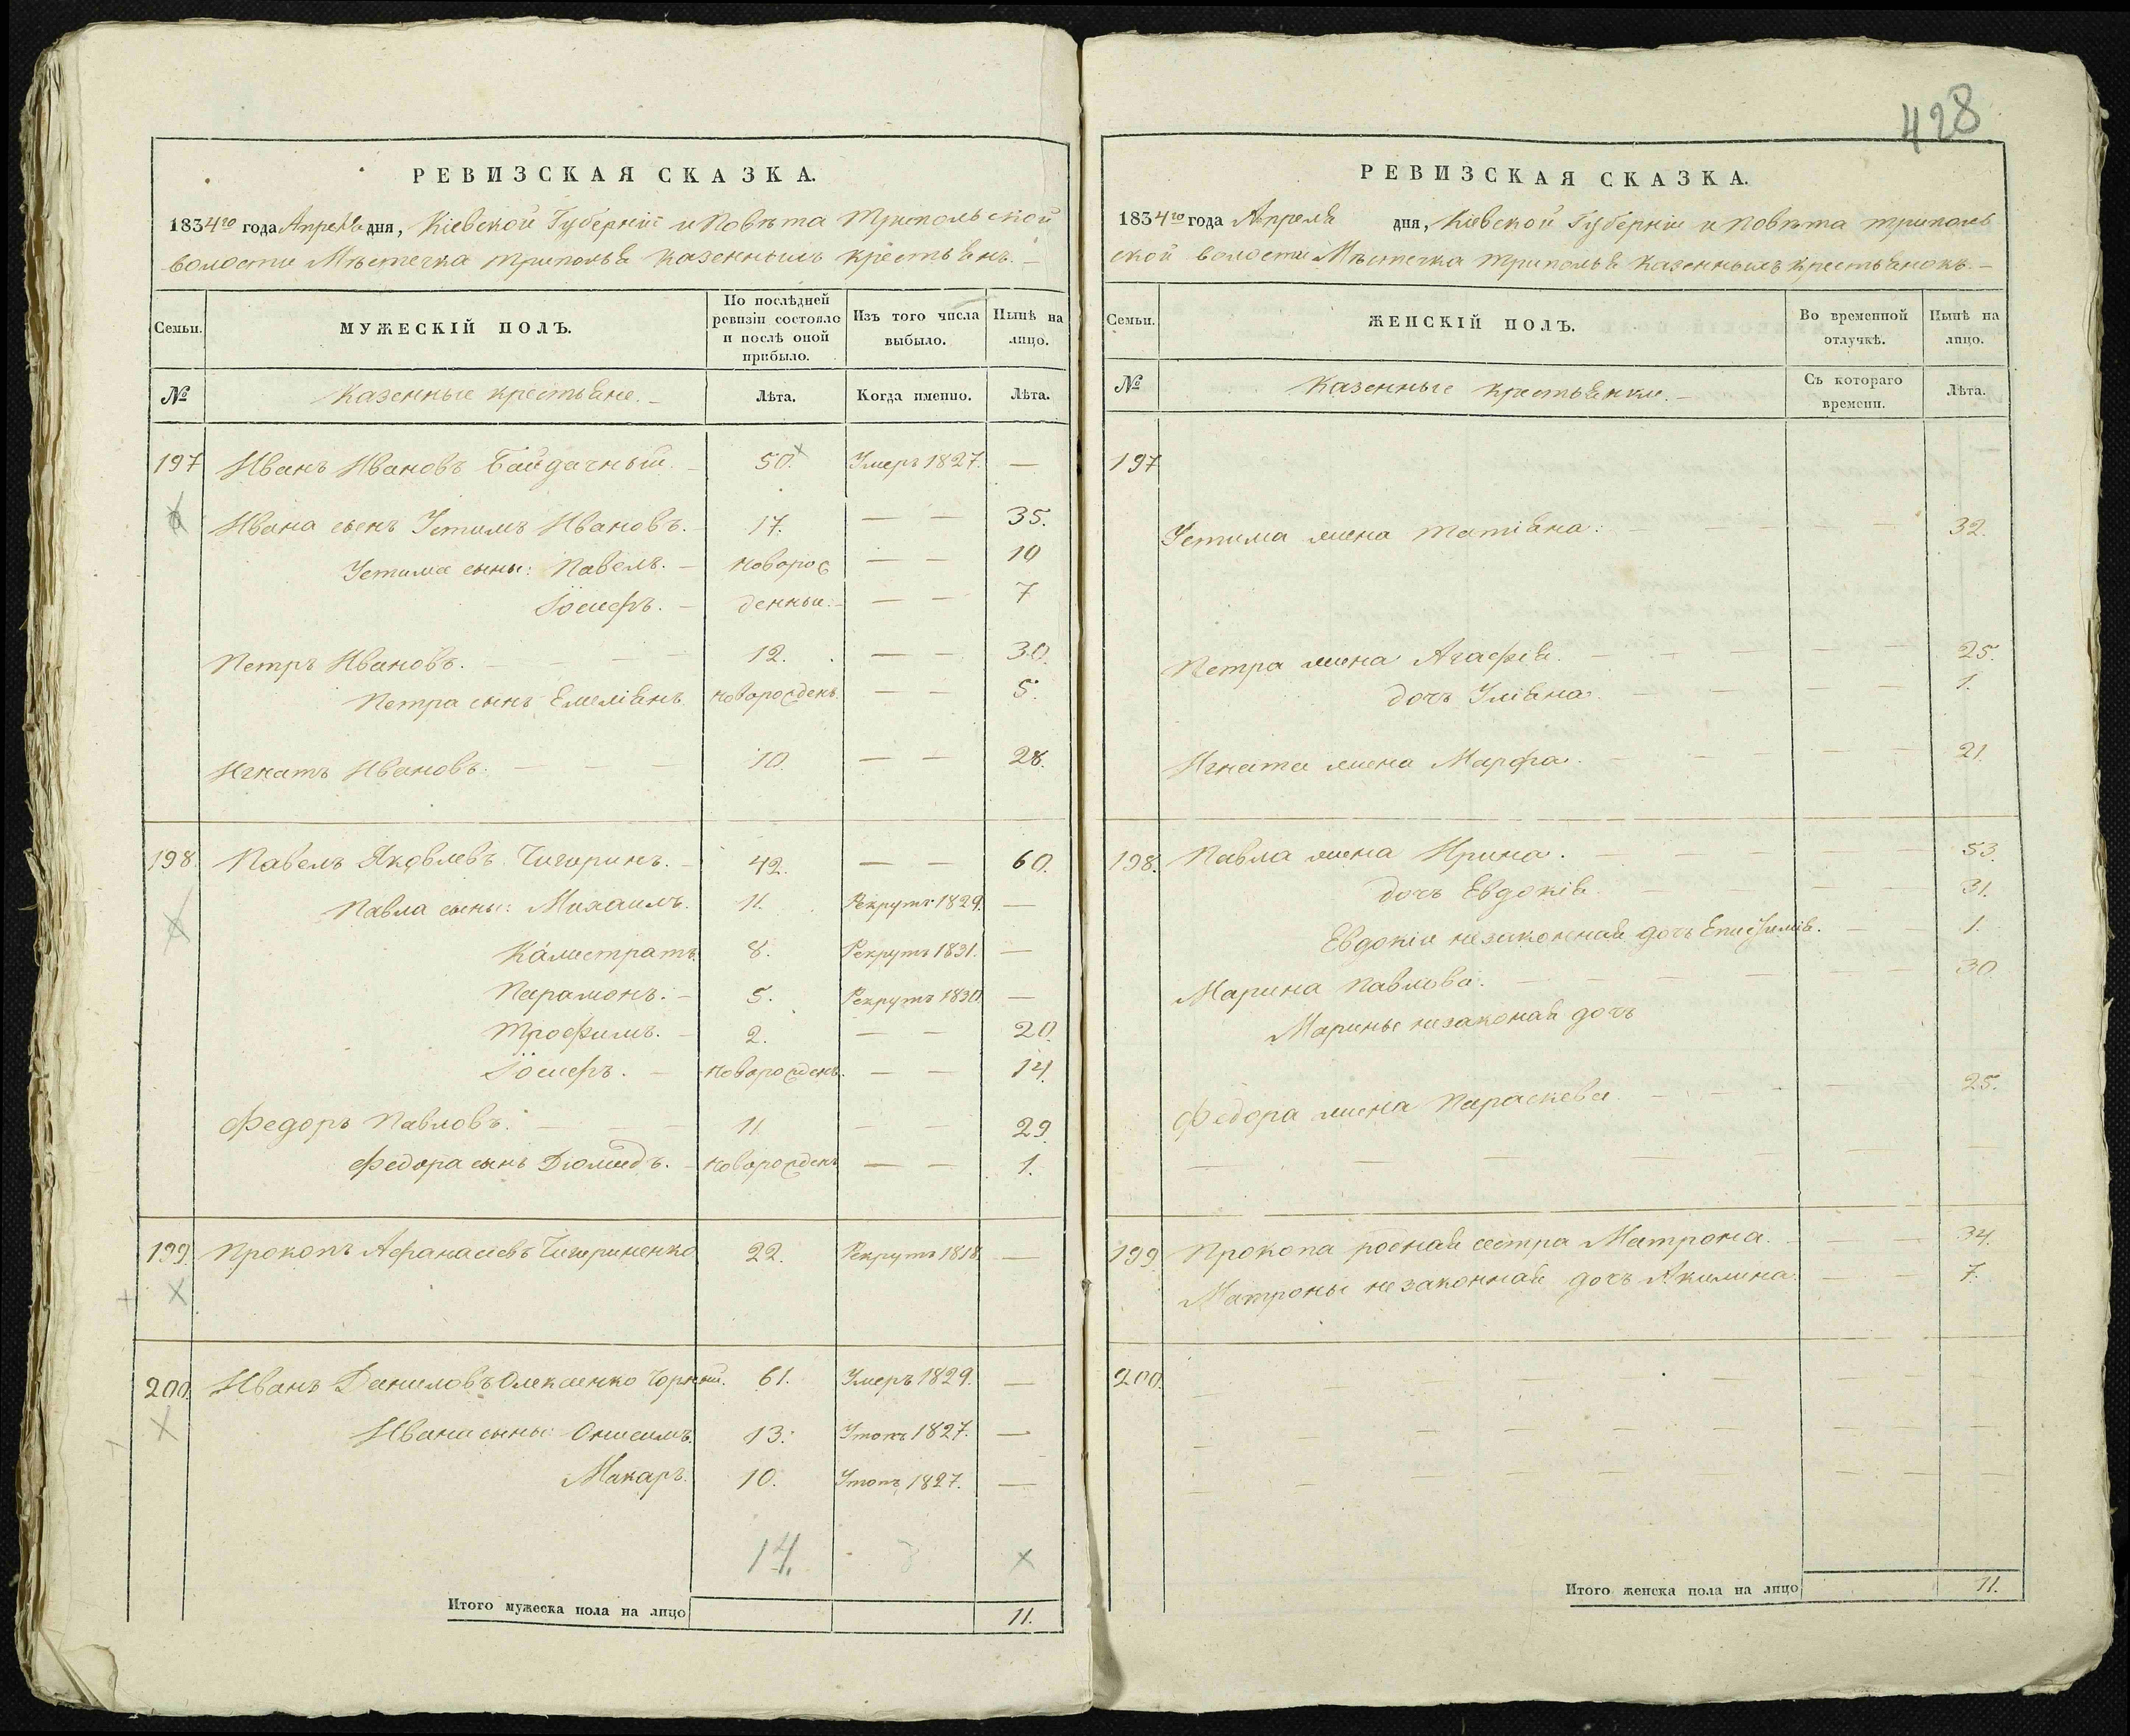 РЕВИЗСКАЯ СКАЗКА.
1834го года Апреля дня, Кіевской Губерніи и Повѣта Трипольской
волости Мѣстечка Триполья казеннымъ крестьянъ.
Семьи.
МУЖЕСКІЙ ПОЛЪ.
По послѣдней ревизіи состояло и послѣ оной прибыло.
Изъ того числа выбыло.
Нынѣ на лицо.
№ Казенные крестьяне. Лѣта. Когда именно. Лѣта.
197 Иванъ Ивановъ Байдачный. 50. Умеръ 1827. —
Ивана сынъ Устимъ Ивановъ. 17. — — 35.
Устима сыны: Павелъ. новорож — — 10
Іосифъ. денныи. — — 7
Петръ Ивановъ. 12. — — 30.
Петра сынъ Емеліянъ новорожденъ. — — 5.
Игнатъ Ивановъ. 10. — — 28.
198. Павелъ Яковлевъ Чигиринъ. 42. — — 60.
Павла сыны: Михаилъ. 11. Рекрутъ 1829. —
Калистратъ. 8. Рекрутъ 1831. —
Парамонъ. 5. Рекрутъ 1830. —
Трофимъ. 2. — — 20.
Іосифъ. новорожденъ. — — 14.
Федоръ Павловъ. 11 — — 29.
Федора сынъ Дюмидъ. новорожденъ — — 1.
199. Прокопъ Афанасіевъ Чигириненко 22. Рекрутъ 1818. —
200. Иванъ Даниловъ Олексіенко Чорный. 61. Умеръ 1829. —
Ивана сыны: Онисимъ. 13. Утопъ 1827. —
Макаръ. 10. Утопъ 1827. —
14.
Итого мужеска пола на лицо 11.
428
РЕВИЗСКАЯ СКАЗКА.
1834го года Апреля дня, Кіевской Губерніи и Повѣта Триполь
ской волости Мѣстечка Триполья Казеннымъ Крестьянокъ.
Семьи.
ЖЕНСКІЙ ПОЛЪ.
Во временной отлучкѣ.
Нынѣ на лицо.
№ Казенные крестьянки. Съ котораго времени. Лѣта.
197
Устима жена Татіяна. 32.
Петра жена Агафія. 25.
дочь Уліяна. 1.
Игната жена Марфа. 21.
198. Павла жена Ирина. 53.
дочь Евдокія. 31.
Евдокіи незаконная дочь Епистимія. 1.
Марина Павлова. 30
Марины незаконая дочь
Федора жена Параскева 25.
199. Прокопа родная сестра Матрона. 34.
Матроны незаконная дочь Акилина. 7.
200.
Итого женска пола на лицо 11.